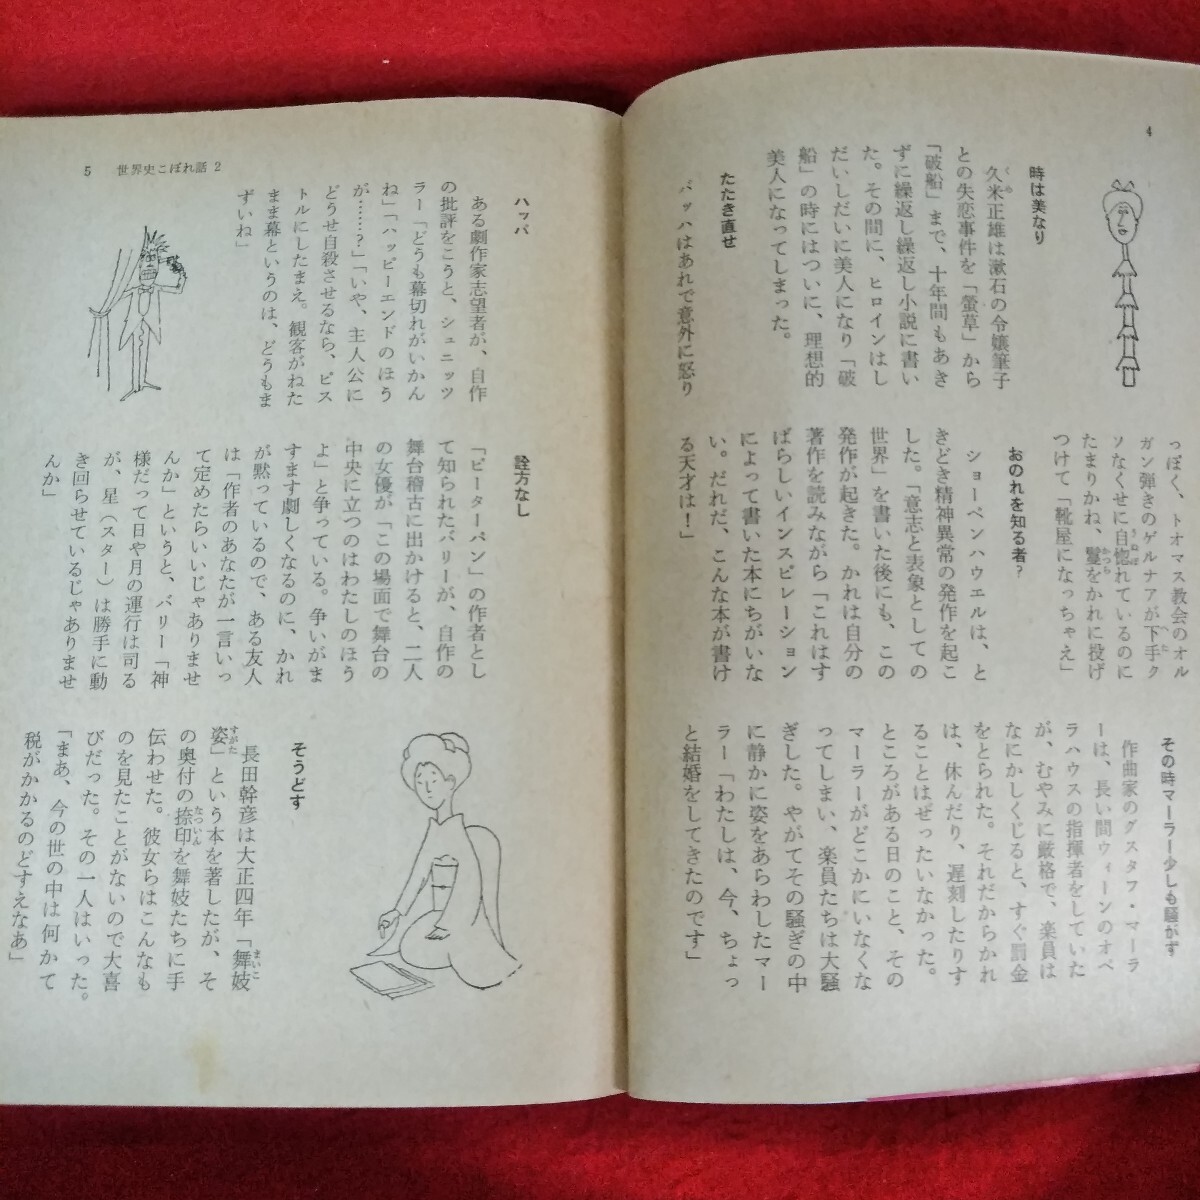 4
時は美なり
久米正雄は漱石の令嬢筆子
くめ
との失恋事件を「螢草」から
「破船」まで、十年間もあき
ずに繰返し繰返し小説に書い
た。その間に、ヒロインはし
だいしだいに美人になり「破
船」の時にはついに、理想的
美人になってしまった。
たたき直せ
バッハはあれで意外に怒り
っぽく、トオマス教会のオル
ガン弾きのゲルナアが下手ク
へた
ソなくせに自惚れているのに
うぬぼ
たまりかね、鬘をかれに投げ
かつら
つけて「靴屋になっちゃえ」
おのれを知る者?
ショーペンハウエルは、と
きどき精神異常の発作を起こ
した。「意志と表象としての
世界」を書いた後にも、この
発作が起きた。かれは自分の
著作を読みながら「これはす
ばらしいインスピレーション
によって書いた本にちがいな
い。だれだ、こんな本が書け
る天才は!」
その時マーラー少しも騒がず
作曲家のグスタフ・マーラ
ーは、長い間ウィーンのオペ
ラハウスの指揮者をしていた
が、むやみに厳格で、楽員は
なにかしくじると、すぐ罰金
をとられた。それだからかれ
は、休んだり、遅刻したりす
ることはぜったいなかった。
ところがある日のこと、その
マーラーがどこかにいなくな
ってしまい、楽員たちは大騒
ぎした。やがてその騒ぎの中
に静かに姿をあらわしたマー
ラー「わたしは、今、ちょっ
と結婚をしてきたのです」
5 世界史こぼれ話 2
ハッパ
ある劇作家志望者が、自作
の批評をこうと、シュニッツ
ラー「どうも幕切れがいかん
ね」「ハッピーエンドのほう
が……?」「いや、主人公に
どうせ自殺させるなら、ピス
トルにしたまえ。観客がねた
まま幕というのは、どうもま
ずいね」
詮方なし
「ピーターパン」の作者とし
て知られたバリーが、自作の
舞台稽古に出かけると、二人
の女優が「この場面で舞台の
中央に立つのはわたしのほう
よ」と争っている。争いがま
すます劇しくなるのに、かれ
が黙っているので、ある友人
は「作者のあなたが一言いっ
て定めたらいいじゃありませ
んか」というと、バリー「神
様だって日や月の運行は司る
が、星(スター)は勝手に動
き回らせているじゃありませ
んか」
そうどす
長田幹彦は大正四年「舞妓
まいこ
姿」という本を著したが、そ
すがた
の奥付の捺印を舞妓たちに手
なついん
伝わせた。彼女らはこんなも
のを見たことがないので大喜
びだった。その一人はいった。
「まあ、今の世の中は何かて
税がかかるのどすえなあ」